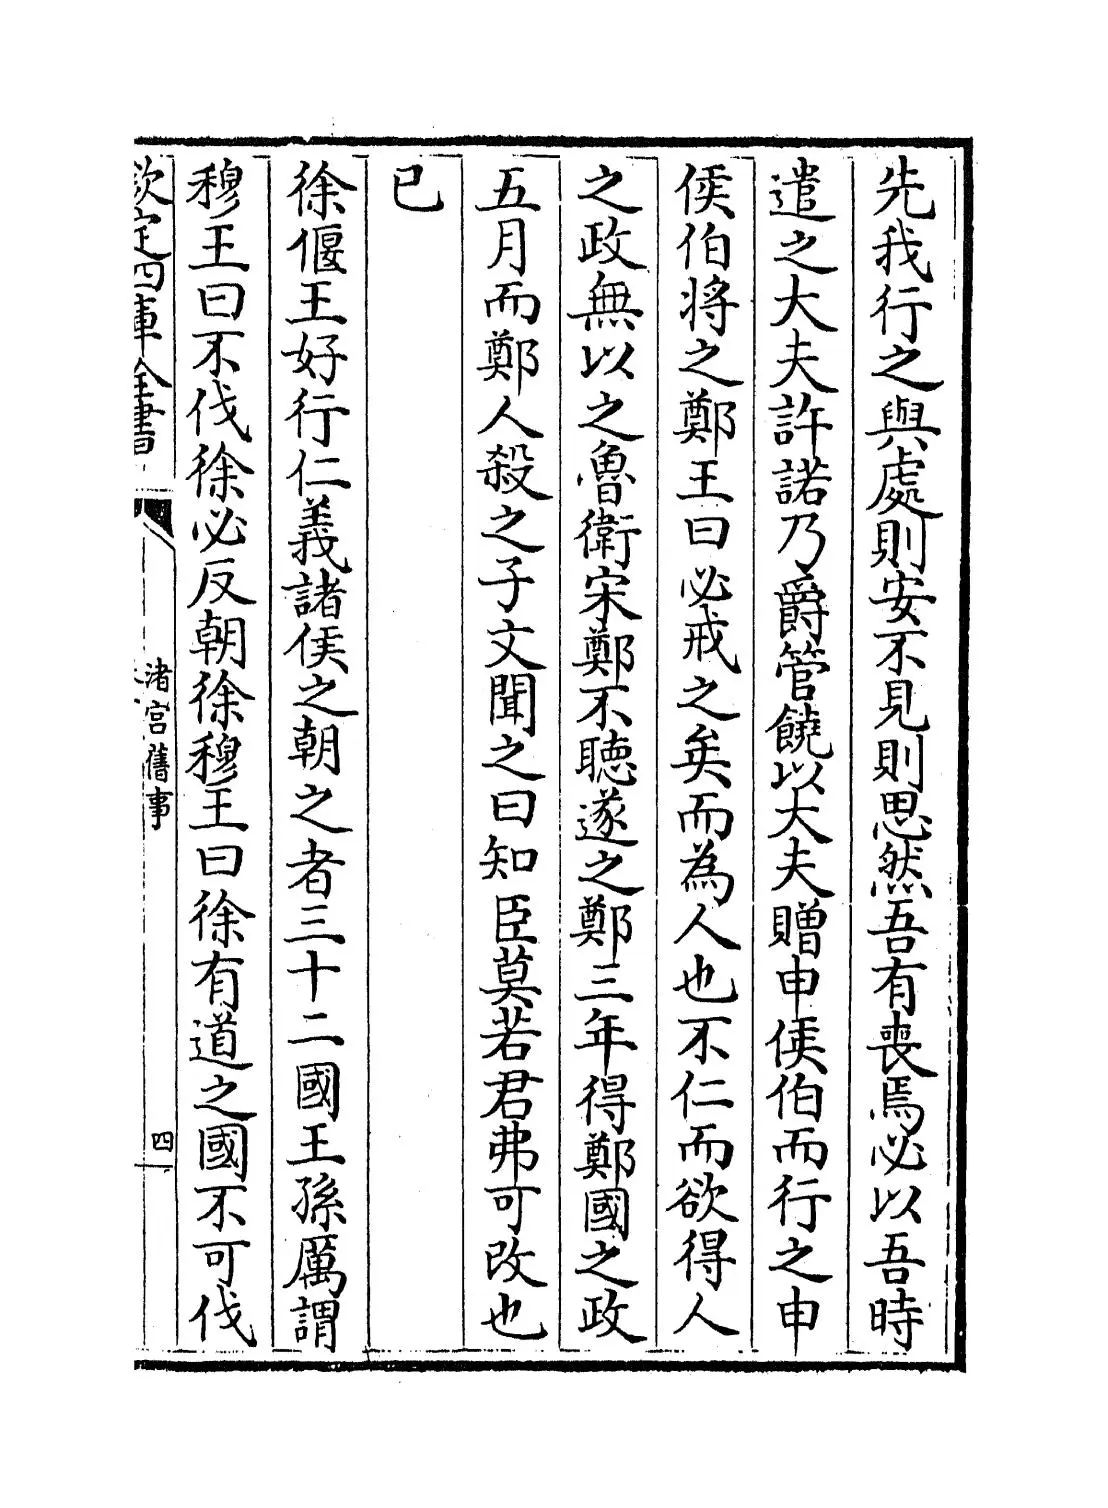 先我行之與處則安不見則思然吾有喪焉必以吾時
遣之大夫許諾乃爵管饒以大夫贈申侯伯而行之申
侯伯將之鄭王曰必戒之矣而為人也不仁而欲得人
之政無以之魯衛宋鄭不聽遂之鄭三年得鄭國之政
五月而鄭人殺之子文聞之曰知臣莫若君弗可改也
已
徐偃王好行仁義諸侯之朝之者三十二國王孫厲謂
穆王曰不伐徐必反朝徐穆王曰徐有道之國不可伐
欽定四庫全書
渚宮舊事
四